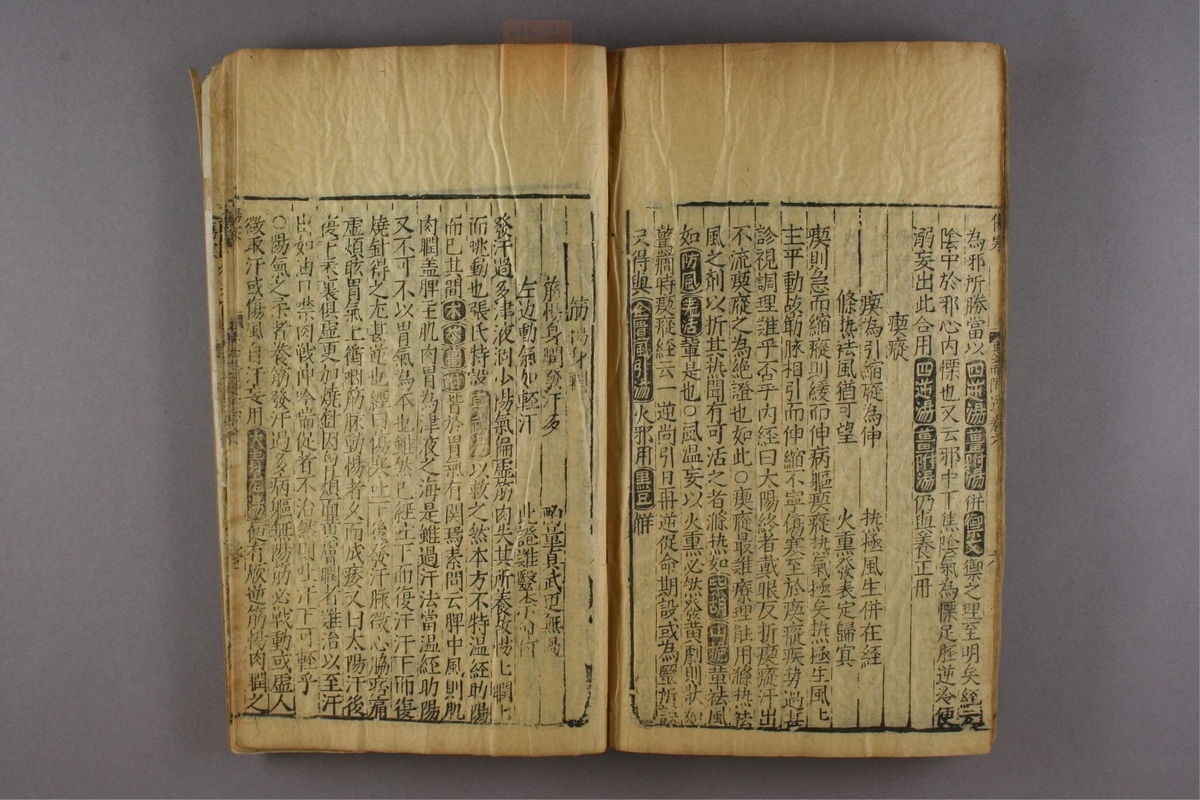 為邪所勝當以四逆湯薑附湯併聖文禦之理至明矣經云
陰中於邪心內慄也又云邪中下焦陰氣為慄足脛逆冷便
溺妄出此合用四逆湯薑附湯仍與養正丹
瘈瘲
瘈為引縮瘲為伸 熱極風生併在經
條熱祛風猶可望 火熏發表定歸冥
瘈則急而縮瘲則緩而伸病軀瘈瘲熱氣極矣熱極生風匕
主乎動故筋脉相引而伸縮不寧傷寒至於瘈瘲疾勢過甚
診視調理難乎否乎內經曰太陽終者戴眼反折瘈瘲汗出
不流瘈瘲之為絕證也如此○瘈瘲最難療理能用滌熱祛
風之劑以折其熱間有可活之者滌熱如柴胡山梔輩祛風
如防風羌活輩是也○風溫妄以火熏必然發黃劇則狀如
驚癇時瘈瘲經云一逆尚引日再逆促命期設或為醫所誤
只得與金匱風引湯火邪用黑豆解
筋惕身瞤
筋惕身瞤發汗多 真武更無過
左边動氣如輕汗 此證難醫
發汗過多津液洞少陽氣偏虛筋肉失其所養故惕匕瞤匕
而跳動也張氏特設 以救之然本方不特溫經助陽
而已其間木苓薑附皆於胃氣有関焉素問云脾中風則肌
肉瞤盖脾主肌肉胃為津液之海是雖過汗法當溫經助陽
又不可不以胃氣為本也雖然已經吐下而復汗汗下而復
燒針得之尤甚 也經曰傷寒吐下後發汗脉微心脇疼痛
虛煩眩冒氣上衝咽筋脉動惕者久而成痿又曰太陽汗後
傷上表裏俱虛更加燒針因胷煩面黃膚瞤者難治以至汗
出如油口噤肉戰呻吟喘促者不治然則吐汗下可輕乎
○陽氣之 者養筋發汗過多病軀無陽筋必戰動或虛人
微取汗或傷風自汗妄用大青龍湯便有厥逆筋惕肉瞤之